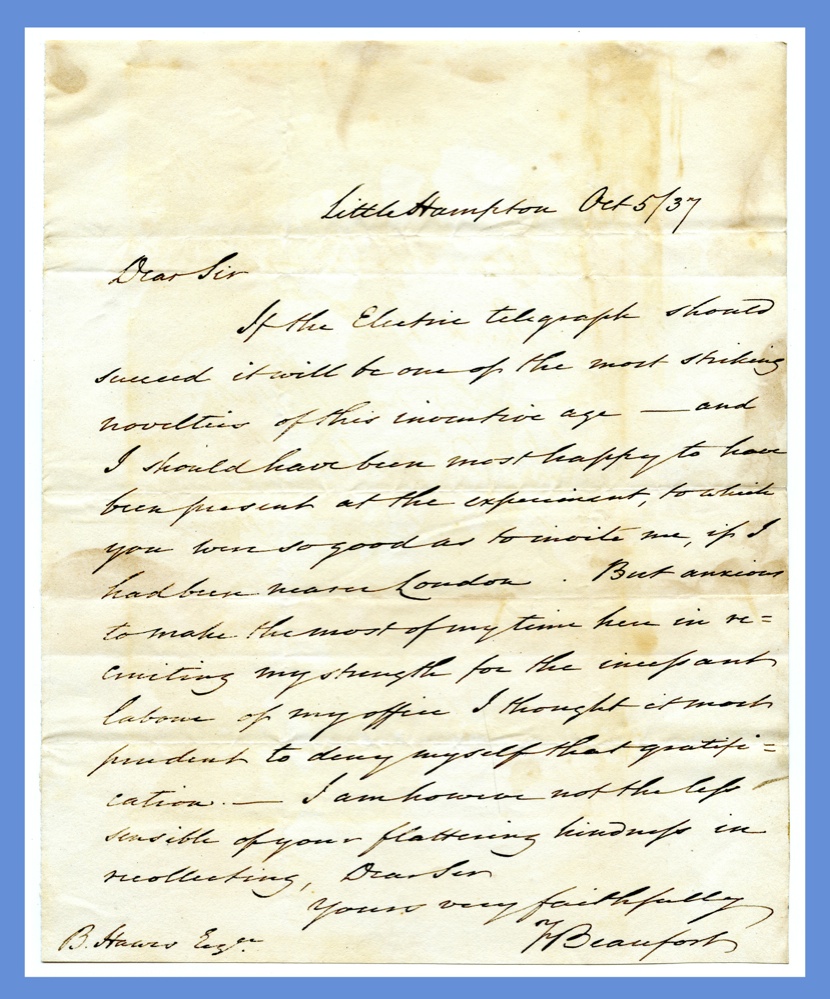 Little Hampton Oct 5/37
Dear Sir
If the Electric telegraph should
succeed it will be one of the most striking
novelties of this inventive age — and
I should have been most happy to have
been present at the experiment, to which
you were so good as to invite me, if I
had been nearer London. But anxious
to make the most of my time here in re=
cruiting my strength for the incessant
labour of my office I thought it most
prudent to deny myself that gratifi=
cation. — I am however not the less
sensible of your flattering kindness in
recollecting, Dear Sir
Yours very faithfully
F Beaufort
B. Hawes Esqre